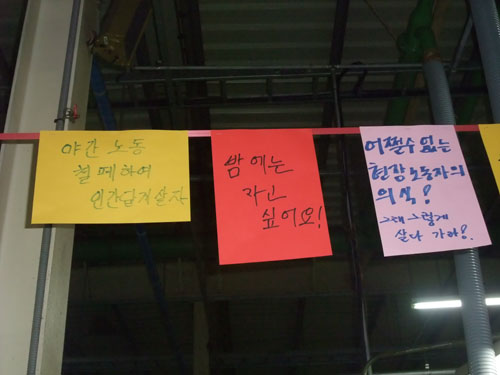 야간 노동
철페하여
인간답게살자
밤에는
자고
싶어요!
어쩔수없는
현장노동자의
의식!
그래그렇게
살다 가라!